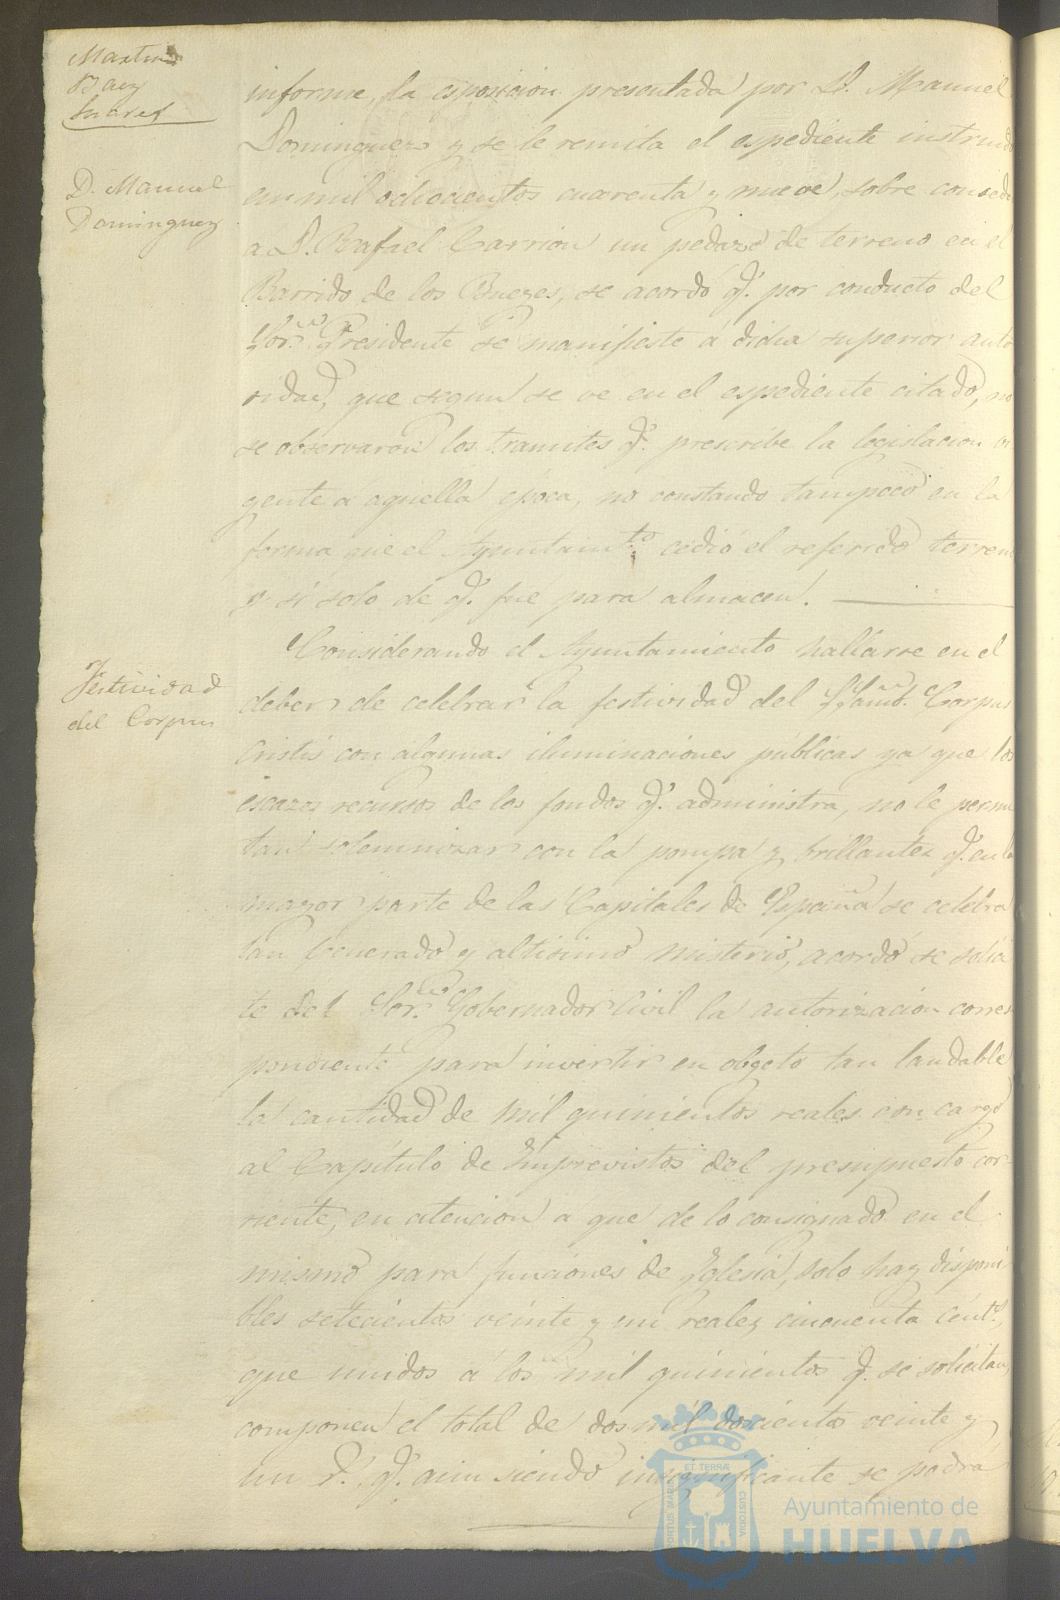 Martin
Baez
Suarez
D. Manuel
Dominguez
informe, la esposicion presentada por D. Manuel
Dominguez y se le remita el espediente instruido
en mil ochocientos cuarenta y nueve, sobre conceder
a D. Rafael Carrion un pedazo de terreno en el
Barrido de los Buezes, se acordó q.e por conducto del
Sor. Presidente se manifieste á dicha superior auto
ridad, que segun se ve en el espediente citado, no
se observaron los tramites q.e prescribe la legislacion vi
gente a aquella época, no constando tampoco en la
forma que el Ayuntam.to cedió el referido terreno
y si solo de q.e fue para almacen.
Festividad
del Corpus
Considerando el Ayuntamiento hallarse en el
deber de celebrar la festividad del Corpus
Cristis con algunas iluminaciones públicas ya que los
escazos recursos de los fondos q.e administra, no le permi
tan solemnizar con la pompa y brillantez q.e en la
mayor parte de las Capitales de España se celebra
tan benerado y altisimo misterio, acordó se solici
te del Sor. Gobernador Civil la autorizacion corres
pondiente para invertir en obgeto tan laudable
la cantidad de mil quinientos reales con cargo
al Capítulo de Imprevistos del presupuesto cor
riente, en atencion a que de lo consignado en el
mismo para funciones de Iglesia, solo hay disponi
bles setecientos veinte y un reales cincuenta cent.s,
que unidos á los mil quinientos q.e se solicitan,
componen el total de dos mil doscientos veinte y
un r.s q.e aun siendo insignificante se podrá
Ayuntamiento de
HUELVA